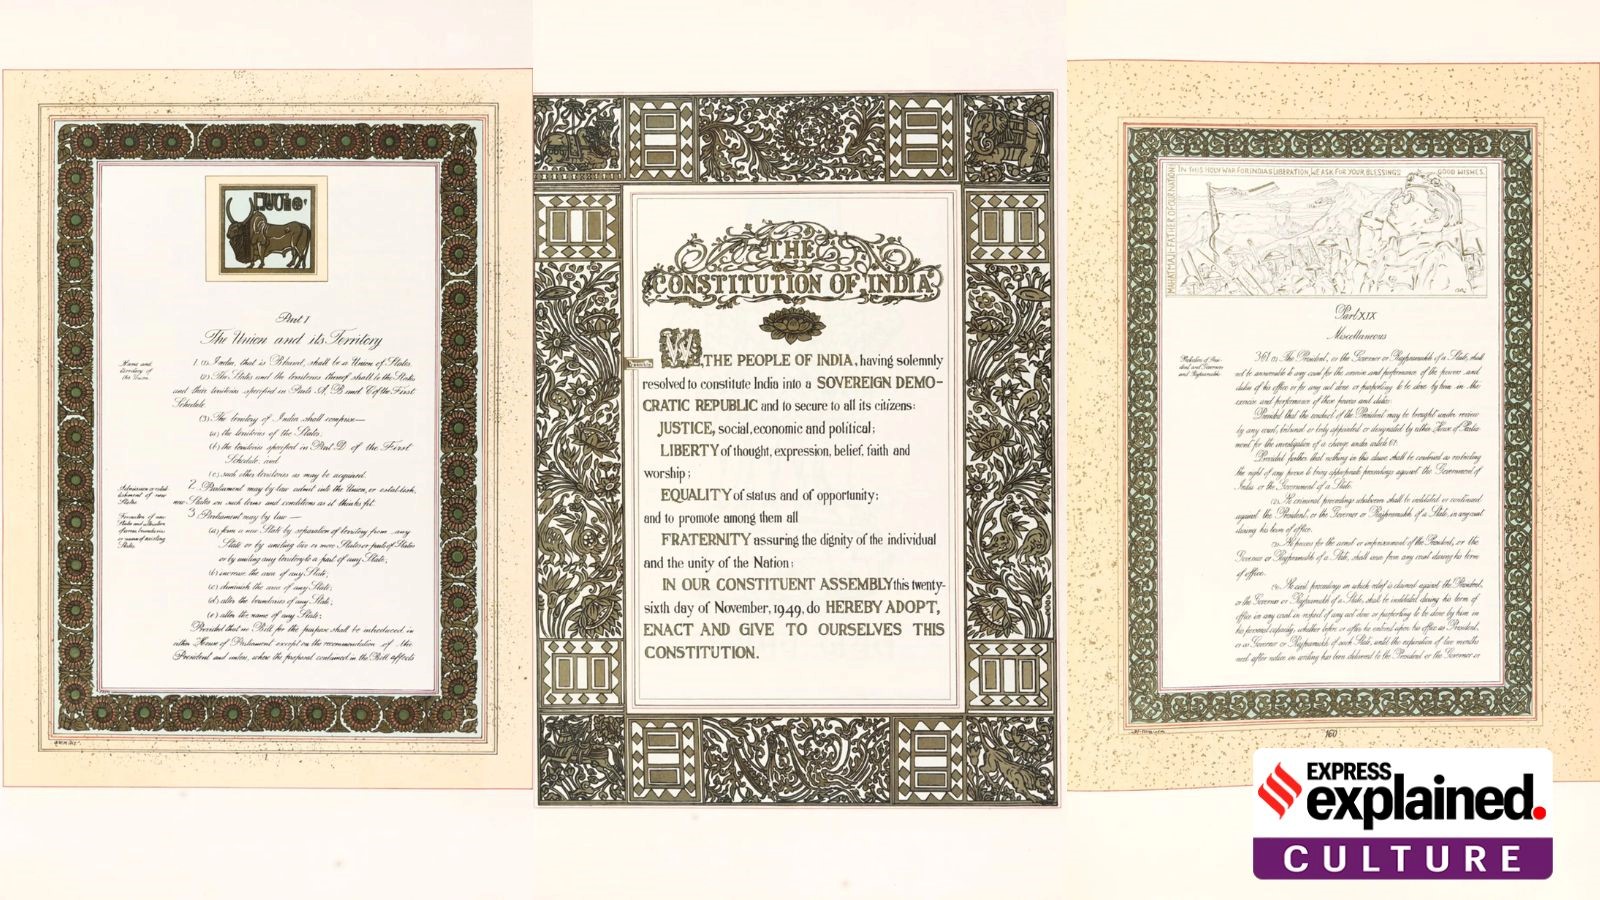 Part I
The Union and its Territory
Name and
territory of
the Union.
1. (1) India, that is Bharat, shall be a Union of States.
(2) The States and the territories thereof shall be the States
and their territories specified in Parts A, B and C of the First
Schedule.
(3) The territory of India shall comprise—
(a) the territories of the States;
(b) the territories specified in Part D of the First
Schedule; and
(c) such other territories as may be acquired.
Admission or estab-
lishment of new
States.
2. Parliament may by law admit into the Union, or establish,
new States on such terms and conditions as it thinks fit.
Formation of new
States and alteration
of areas, boundaries
or names of existing
States.
3. Parliament may by law—
(a) form a new State by separation of territory from any
State or by uniting two or more States or parts of States
or by uniting any territory to a part of any State;
(b) increase the area of any State;
(c) diminish the area of any State;
(d) alter the boundaries of any State;
(e) alter the name of any State:
Provided that no Bill for the purpose shall be introduced in
either House of Parliament except on the recommendation of the
President and unless, where the proposal contained in the Bill affects
THE
CONSTITUTION OF INDIA
WE, THE PEOPLE OF INDIA, having solemnly
resolved to constitute India into a SOVEREIGN DEMO-
CRATIC REPUBLIC and to secure to all its citizens:
JUSTICE, social, economic and political;
LIBERTY of thought, expression, belief, faith and
worship;
EQUALITY of status and of opportunity;
and to promote among them all
FRATERNITY assuring the dignity of the individual
and the unity of the Nation;
IN OUR CONSTITUENT ASSEMBLY this twenty-
sixth day of November, 1949, do HEREBY ADOPT,
ENACT AND GIVE TO OURSELVES THIS
CONSTITUTION.
IN THIS HOLY WAR FOR INDIA'S LIBERATION, WE ASK FOR YOUR BLESSINGS GOOD WISHES.
MAHATMAJI - FATHER OF OUR NATION
Part XIX
Miscellaneous
Protection of Presi-
dent and Governors
and Rajpramukhs.
361. (1) The President, or the Governor or Rajpramukh of a State, shall
not be answerable to any court for the exercise and performance of the powers and
duties of his office or for any act done or purporting to be done by him in the
exercise and performance of those powers and duties:
Provided that the conduct of the President may be brought under review
by any court, tribunal or body appointed or designated by either House of Parlia-
ment for the investigation of a charge under article 61:
Provided further that nothing in this clause shall be construed as restricting
the right of any person to bring appropriate proceedings against the Government of
India or the Government of a State.
(2) No criminal proceedings whatsoever shall be instituted or continued
against the President, or the Governor or Rajpramukh of a State, in any court
during his term of office.
(3) No process for the arrest or imprisonment of the President, or the
Governor or Rajpramukh of a State, shall issue from any court during his term
of office.
(4) No civil proceedings in which relief is claimed against the President,
or the Governor or Rajpramukh of a State, shall be instituted during his term of
office in any court in respect of any act done or purporting to be done by him in
his personal capacity, whether before or after he entered upon his office as President,
or as Governor or Rajpramukh of such State, until the expiration of two months
next after notice in writing has been delivered to the President or the Governor or
160
EXPRESS
explained.
CULTURE